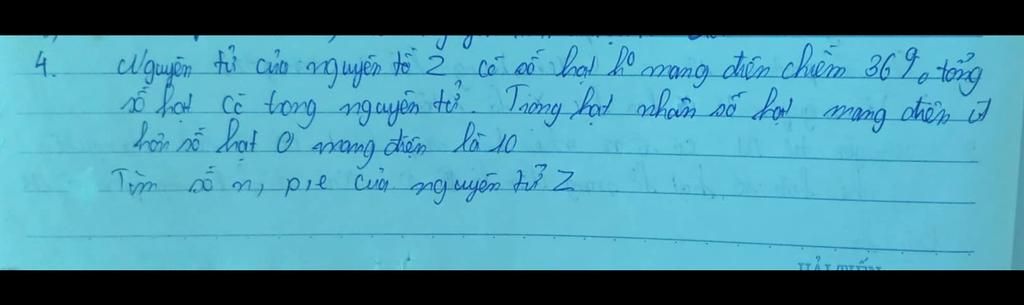 4. Nguyên tử của nguyên tố Z có số hạt ko mang điện chiếm 36% tổng
số hạt có trong nguyên tử. Trong hạt nhân số hạt mang điện ít
hơn số hạt 0 mang điện là 10
Tìm số n, p, e của nguyên tử Z
HẢI TIẾN